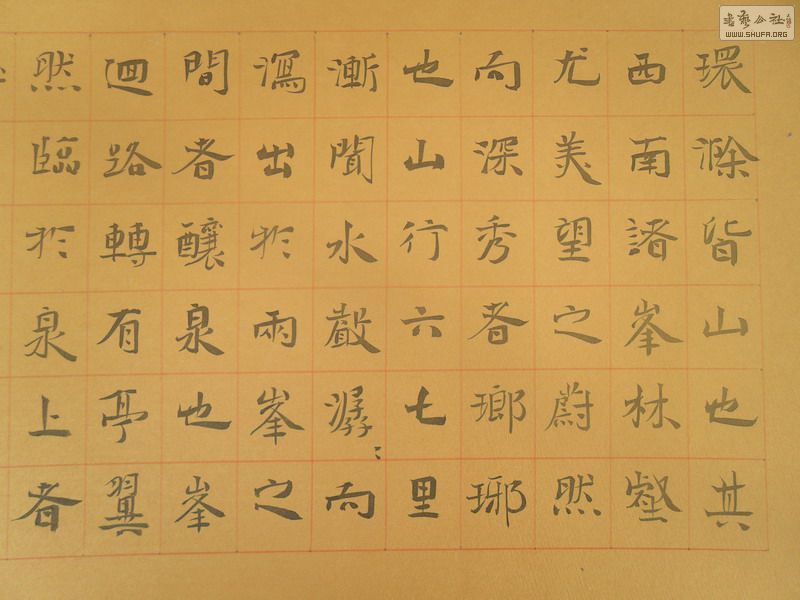 環滁皆山也其
西南諸峯林壑
尤美望之蔚然
而深秀者瑯琊
也山行六七里
漸聞水聲潺〻而
瀉出於兩峯之
間者釀泉也峯
迴路轉有亭翼
然臨於泉上者
書藝公社
WWW.SHUFA.ORG